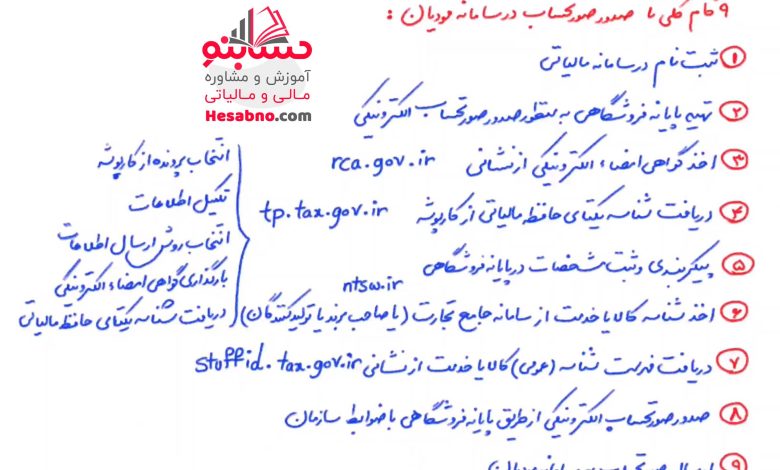 ۹ گام کلی تا صدور صورتحساب در سامانه مودیان :
حسابنو
آموزش و مشاوره
مالی و مالیاتی
Hesabno.com
۱ ثبت نام در سامانه مالیاتی
۲ تهیه پایانه فروشگاهی به منظور صدور صورتحساب الکترونیکی
۳ اخذ گواهی امضاء الکترونیکی از نشانی rca.gov.ir
۴ دریافت شناسه یکتای حافظه مالیاتی از کارپوشه tp.tax.gov.ir
انتخاب پرونده از کارپوشه
تکمیل اطلاعات
انتخاب روش ارسال اطلاعات
بارگذاری گواهی امضاء الکترونیکی
دریافت شناسه یکتای حافظه مالیاتی
۵ پیکربندی و ثبت مشخصات در پایانه فروشگاهی
ntsw.ir
۶ اخذ شناسه کالا یا خدمت از سامانه جامع تجارت (یا صاحب برند یا تولیدکنندگان)
۷ دریافت فهرست شناسه (عمومی) کالا یا خدمت از نشانی stuffid.tax.gov.ir
۸ صدور صورتحساب الکترونیکی از طریق پایانه فروشگاهی با ضوابط سازمان
۹